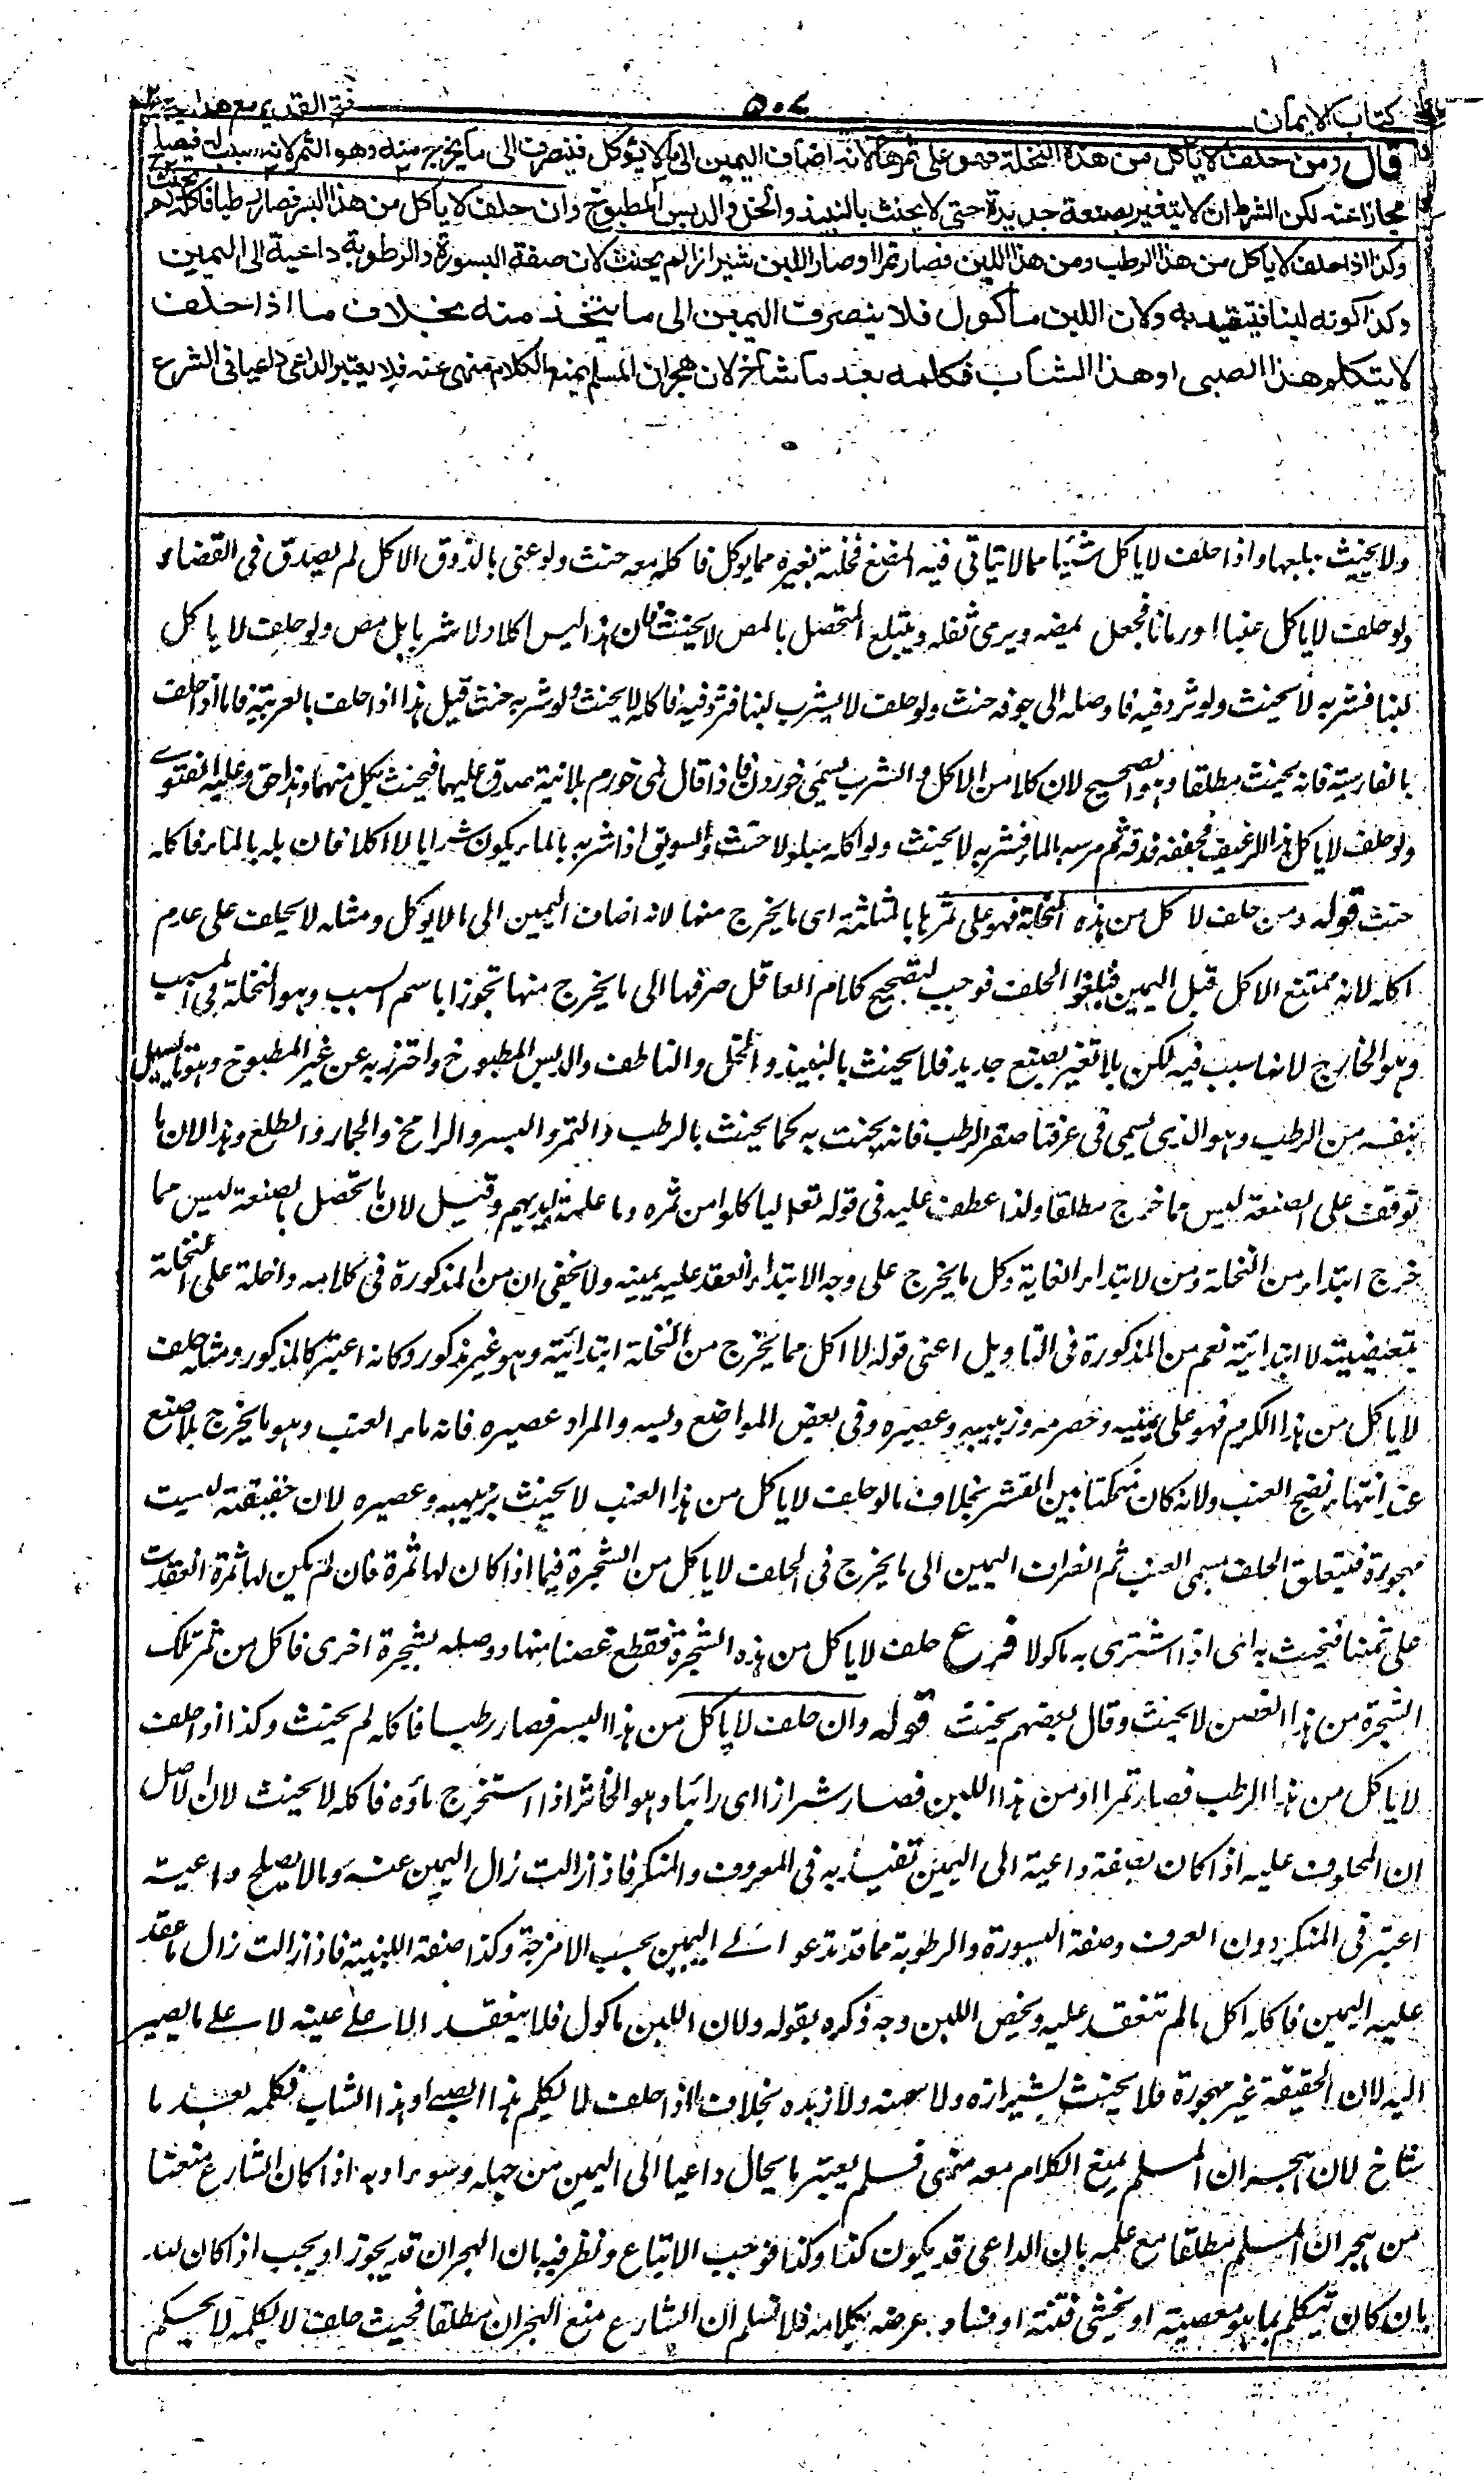 كتاب الايمان
٥٠٧
فتح القدير مع هداية
قال ومن حلف لا ياكل من هذه النخلة فهو على ثمرها لانه اضاف اليمين الى ما لا يؤكل فينصرف الى ما يخرج منه وهو الثمر لانه سبب له فيصلح
مجازا عنه لكن الشرط ان لا يتغير بصنعة جديدة حتى لا يحنث بالنبيذ والخل والدبس المطبوخ وان حلف لا ياكل من هذا البسر فصار رطبا فاكله لم يحنث
وكذا اذا حلف لا ياكل من هذا الرطب ومن هذا اللبن فصار تمرا او صار اللبن شيرازا لم يحنث لان صفة البسورة والرطوبة داعية الى اليمين
وكذا كونه لبنا فيتقيد به ولان اللبن ماكول فلا ينصرف اليمين الى ما يتخذ منه بخلاف ما اذا حلف
لا يتكلم هذا الصبى او هذا الشاب فكلمه بعد ما شاخ لان هجران المسلم بمنع الكلام منهى عنه فلا يعتبر الداعى داعيا فى الشرع
ولا يحنث ببلعها واذا حلف لا ياكل شيئا مما لا يتاتى فيه المضغ فخلته بغيره مما يوكل فاكله معه حنث ولو عنى بالذوق الاكل لم يصدق فى القضاء
ولو حلف لا ياكل عنبا او رمانا فجعل يمضه ويرمى ثفله ويبتلع المتحصل بالمص لا يحنث لان هذا ليس اكلا ولا شربا بل مص ولو حلف لا ياكل
لبنا فشربه لا يحنث ولو ثرد فيه فاوصله الى جوفه حنث ولو حلف لا يشرب لبنا فثرد فيه فاكله لا يحنث ولو شربه حنث قيل هذا اذا حلف بالعربية فاما اذا حلف
بالفارسية فانه يحنث مطلقا وهو الصحيح لان كلا من الاكل والشرب يسمى خوردن فاذا قال نمى خورم بلا نية صدق عليهما فيحنث بكل منهما وهذا حق وعليه الفتوے
ولو حلف لا ياكل هذا الرغيف فجففه فدقه ثم مرسه بالماء فشربه لا يحنث ولو اكله مبلولا حنث والسويق اذا شربه بالماء يكون شربا لا اكلا فان بله بالماء فاكله
حنث قوله ومن حلف لا ياكل من هذه النخلة فهو على ثمرها بالمثلثة اى ما يخرج منها لانه اضاف اليمين الى ما لا يوكل ومثله لا يحلف على عدم
اكله لانه ممتنع الاكل قبل اليمين فيلغو الحلف فوجب لتصحيح كلام العاقل صرفها الى ما يخرج منها تجوزا باسم السبب وهو النخلة فى المسبب
وهو الخارج لانها سبب فيه لكن بلا تغير بصنع جديد فلا يحنث بالنبيذ والخل والناطف والدبس المطبوخ واحترز به عن غير المطبوخ وهو ما يسيل
بنفسه من الرطب وهو الذى يسمى فى عرفنا صقر الرطب فانه يحنث به كما يحنث بالرطب والتمر والبسر والرامخ والجمار والطلع وهذا لان ما
توقف على الصنعة ليس مما خرج مطلقا ولذا عطف عليه فى قوله تعالى لياكلوا من ثمره وما علمته ايديهم وقيل لان ما تحصل بالصنعة ليس مما
خرج ابتداء من النخلة ومن لابتداء الغاية وكل ما يخرج على وجه الابتداء انعقد عليه يمينه ولا يخفى ان من المذكورة فى كلامه داخلة على النخلة
تبعيضية لا ابتدائية نعم من المذكورة فى التاويل اعنى قوله لا اكل مما يخرج من النخلة ابتدائية وهو غير مذكور وكانه اعتبر كالمذكور ومثله حلف
لا ياكل من هذا الكرم فهو على عنبه وحصرمه وزبيبه وعصيره وفى بعض المواضع دبسه والمراد عصيره فانه ماء العنب وهو ما يخرج بلا صنع
عند انتهاء نضج العنب ولانه كان متمكنا بين القشر بخلاف ما لو حلف لا ياكل من هذا العنب لا يحنث بزبيبه وعصيره لان حقيقته ليست
مهجورة فيتعلق الحلف بمسمى العنب ثم انصراف اليمين الى ما يخرج فى الحلف لا ياكل من الشجرة فيما اذا كان لها ثمرة فان لم يكن لها ثمرة انعقدت
على ثمنها فيحنث به اى اذا اشترى به ماكولا فرع حلف لا ياكل من هذه الشجرة فقطع غصنا منها ووصله بشجرة اخرى فاكل من ثمر تلك
الشجرة من هذا الغصن لا يحنث وقال بعضهم يحنث قوله وان حلف لا ياكل من هذا البسر فصار رطبا فاكله لم يحنث وكذا اذا حلف
لا ياكل من هذا الرطب فصار تمرا او من هذا اللبن فصار شيرازا اى رائبا وهو الخاثر اذا استخرج ماؤه فاكله لا يحنث لان الاصل
ان المحلوف عليه اذا كان بصفة داعية الى اليمين تقيد به فى المعروف والمنكر فاذا زالت زال اليمين عنه وما لا يصلح داعية
اعتبر فى المنكر دون العرف وصفة البسورة والرطوبة مما قد تدعو الے اليمين بحسب الامزجة وكذا صفة اللبنية فاذا زالت زال ما عقد
عليه اليمين فاكله اكل ما لم تنعقد عليه ويخص اللبن وجه ذكره بقوله ولان اللبن ماكول فلا ينعقد الا علے عينه لا علے ما يصير
اليه لان الحقيقة غير مهجورة فلا يحنث بشيرازه ولا سمنه ولا زبده بخلاف ما اذا حلف لا يكلم هذا الصبے او هذا الشاب فكلمه بعد ما
شاخ لان هجران المسلم بمنع الكلام معه منهى فلم يعتبر ما يخال داعيا الى اليمين من جهله وسوء ادبه اذا كان الشارع منعنا
من هجران المسلم مطلقا مع علمه بان الداعى قد يكون كذا وكذا فوجب الاتباع ونظر فيه بان الهجران قد يجوز او يجب اذا كان لله
بان كان يتكلم بما هو معصية او يخشى فتنة او فساد عرضه بكلامه فلا نسلم ان الشارع منع الهجران مطلقا فحيث حلف لا يكلمه لا يحكم